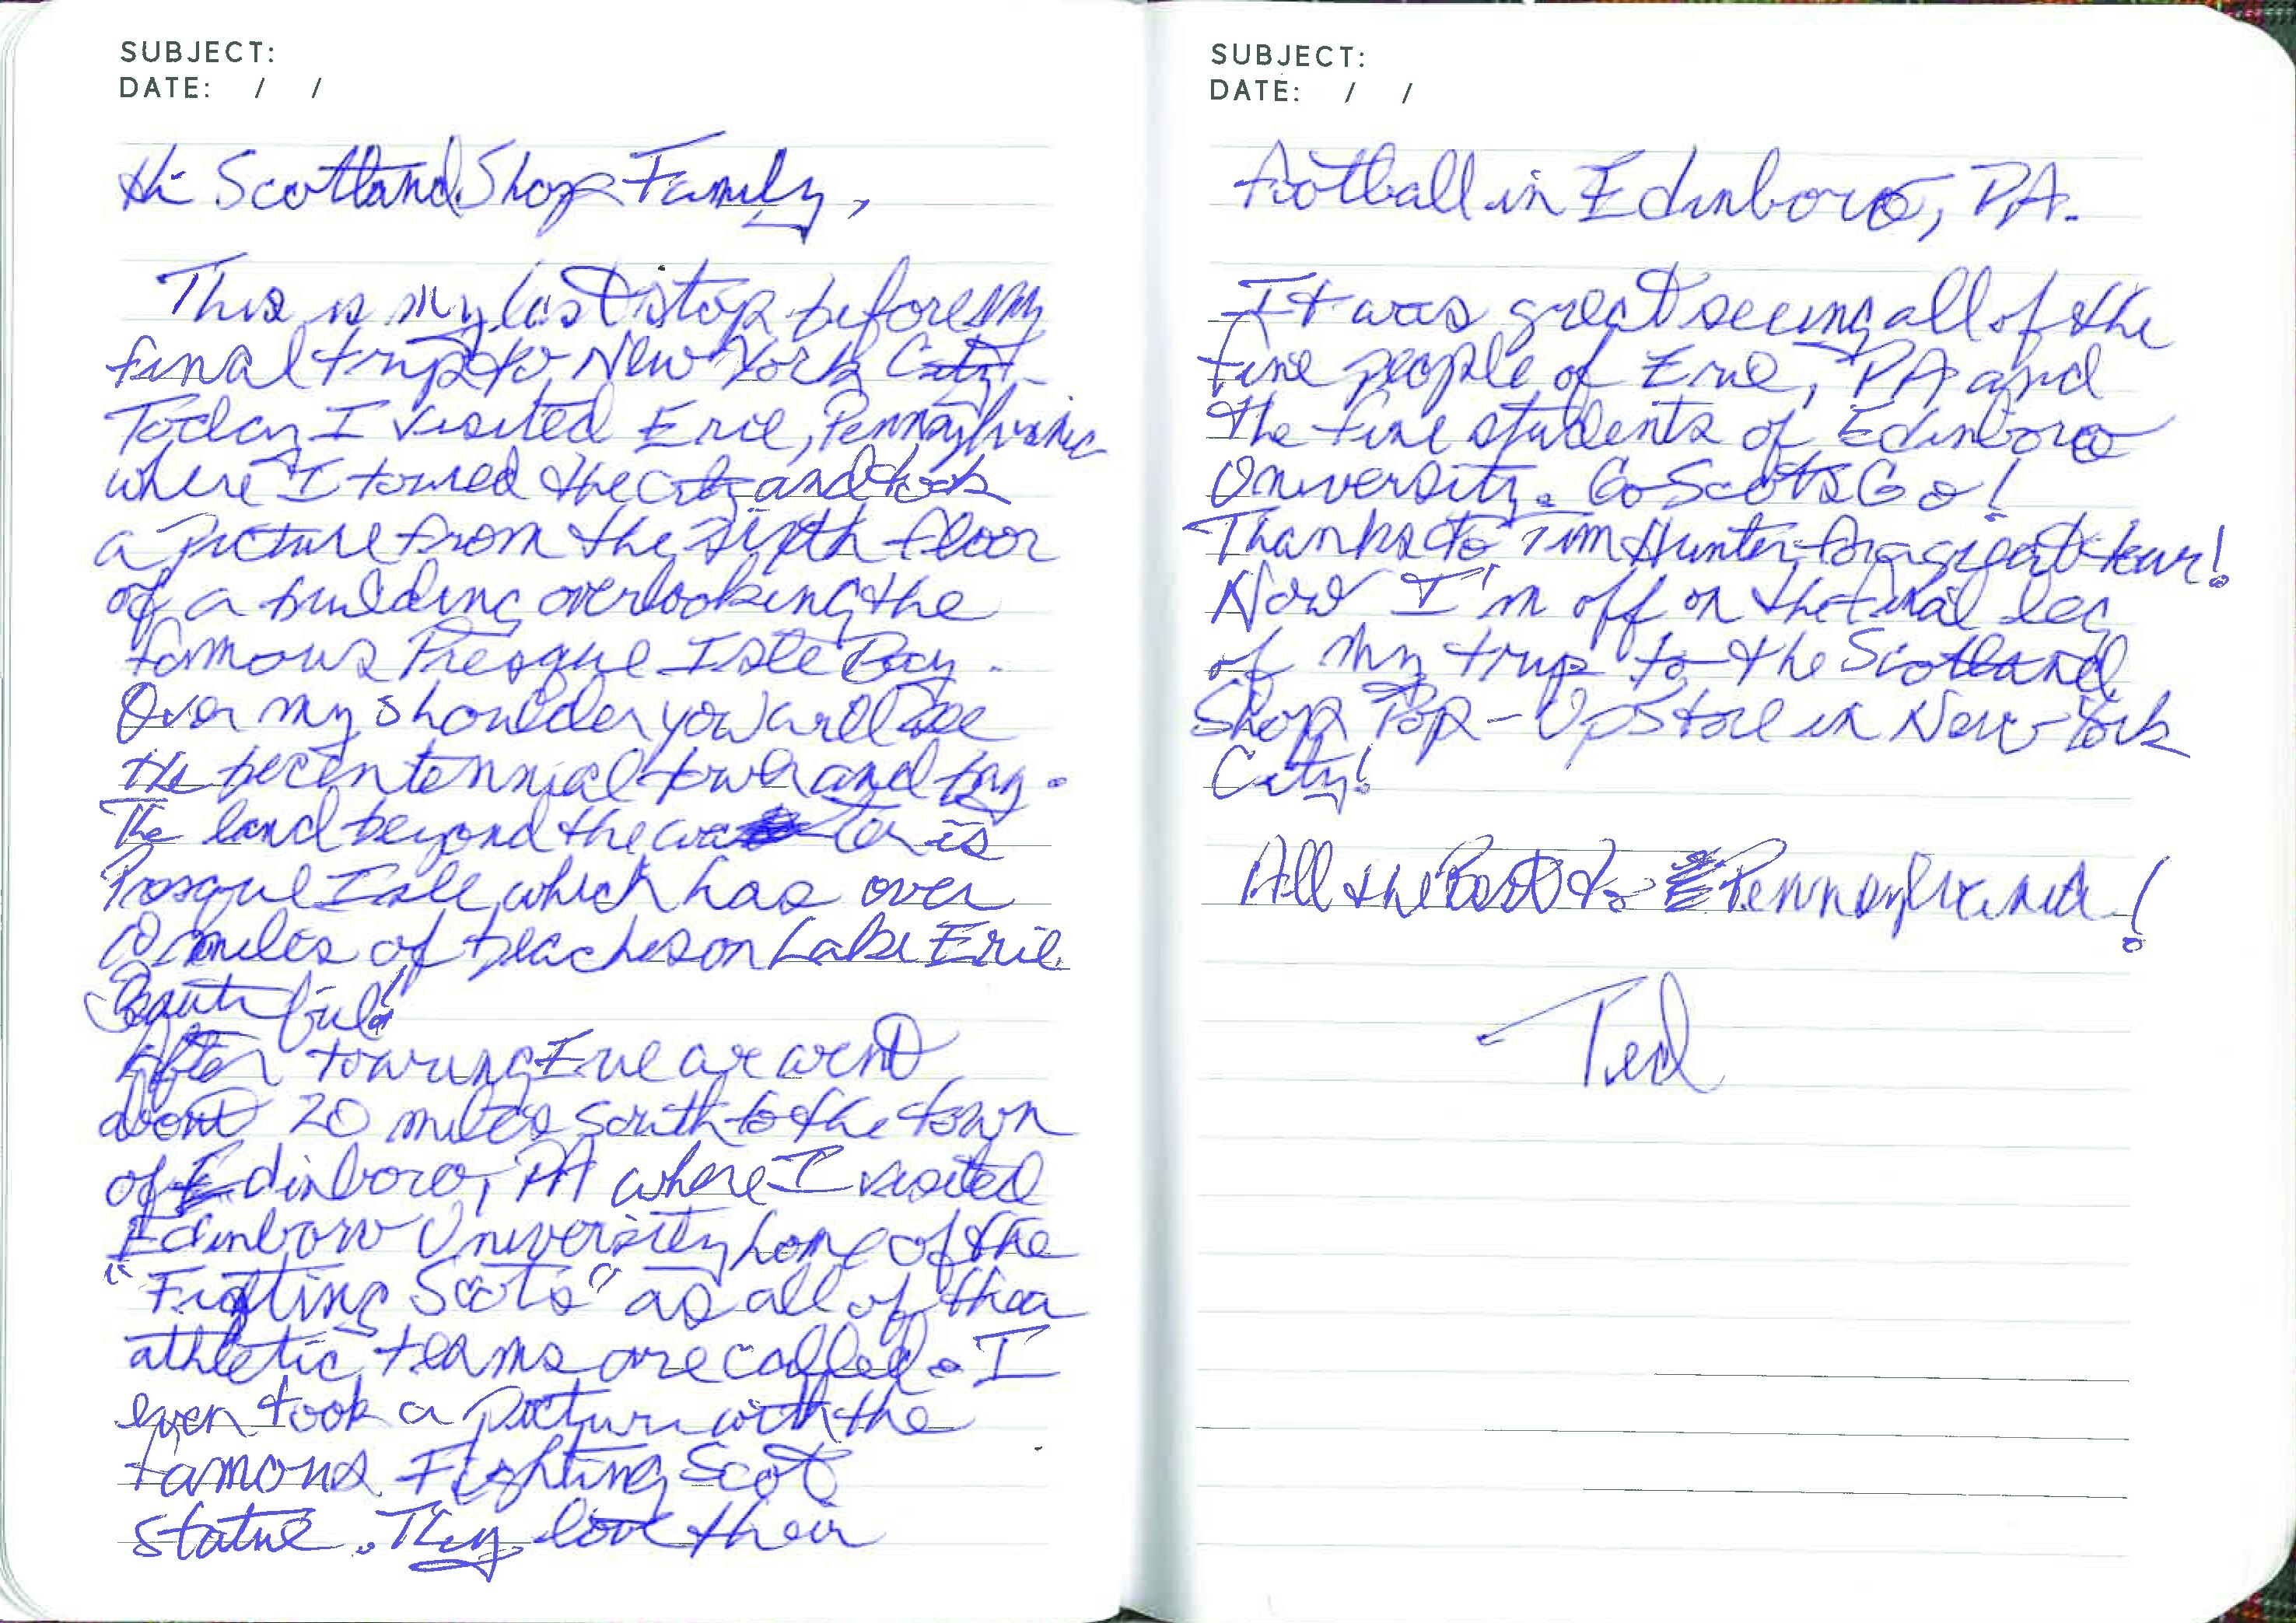 SUBJECT:
DATE: / /
Hi ScotlandShop Family,
This is my last stop before my
final trip to New York City.
Today I visited Erie, Pennsylvania
where I toured the city and took
a picture from the sixth floor
of a building overlooking the
famous Presque Isle Bay.
Over my shoulder you will see
the becentennial tower and bay.
The land beyond the water is
Presque Isle which has over
miles of beaches on Lake Erie.
Beautiful!
After touring Erie we went
about 20 miles south to the town
of Edinboro, PA where I visited
Edinboro University home of the
"Fighting Scots" as all of their
athletic teams are called. I
even took a picture with the
famous Fighting Scot
statue. They love their
SUBJECT:
DATE: / /
football in Edinboro, PA.
It was great seeing all of the
fine people of Erie, PA and
the fine students of Edinboro
University. Go Scots Go!
Thanks to Tim Hunter for a great tour!
Now I'm off on the final leg
of my trip to the Scotland
Shop Pop-Up Store in New York
City!
All the Best to Pennsylvania!
Ted